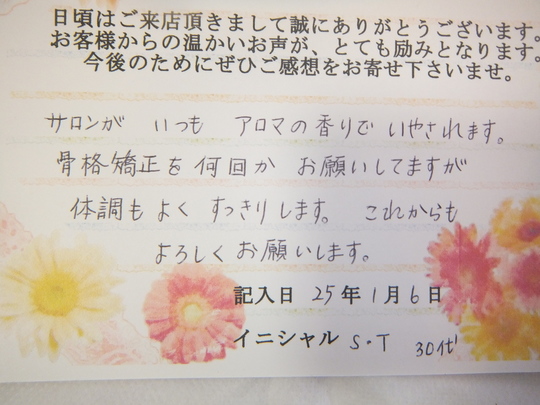 日頃はご来店頂きまして誠にありがとうございます。
お客様からの温かいお声が、とても励みとなります。
今後のためにぜひご感想をお寄せ下さいませ。
サロンが いつも アロマの香りで いやされます。
骨格矯正を何回か お願いしてますが
体調もよく すっきりします。 これからも
よろしくお願いします。
記入日 25年 1月 6日
イニシャル S・T 30代